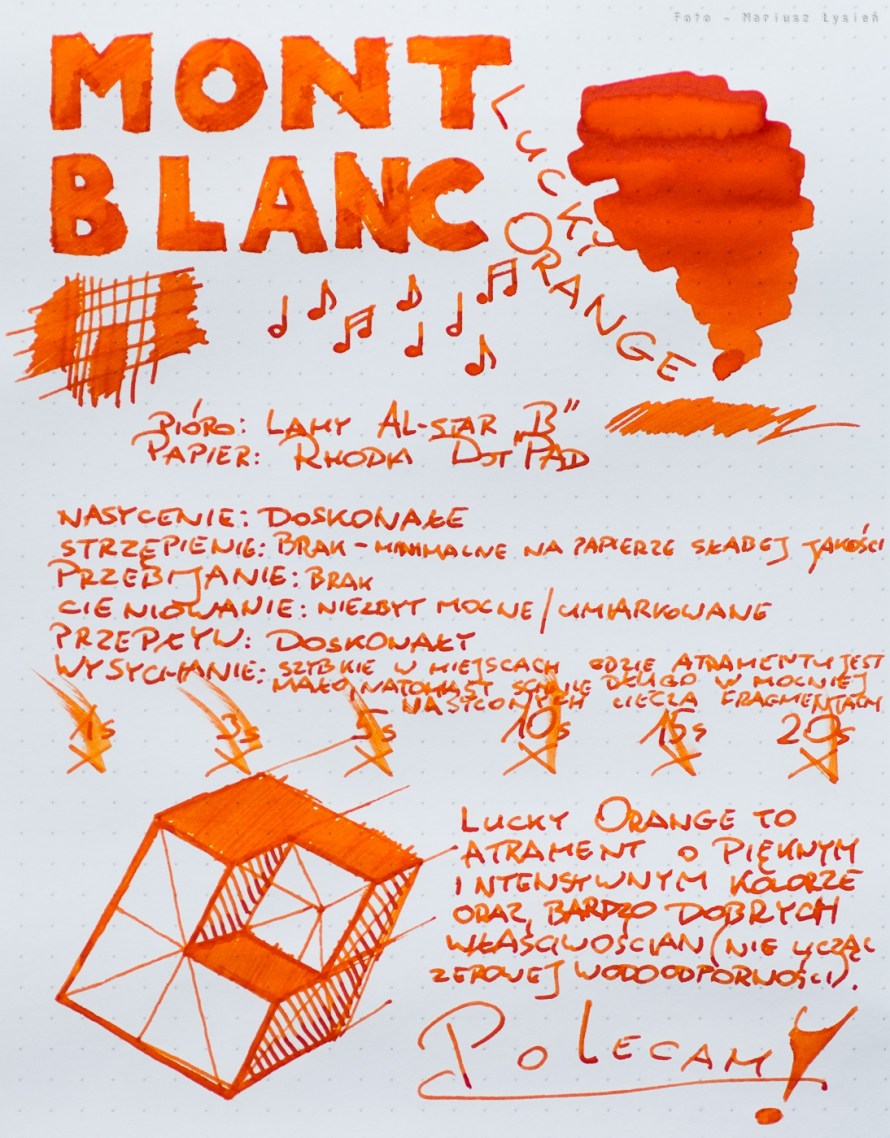 Foto - Mariusz Łysień
MONT
BLANC
LUCKY
ORANGE
PIÓRO: LAMY AL-STAR „B”
PAPIER: RHODIA DOT PAD
NASYCENIE: DOSKONAŁE
STRZĘPIENIE: BRAK - MINIMALNE NA PAPIERZE SŁABEJ JAKOŚCI
PRZEBIJANIE: BRAK
CIENIOWANIE: NIEZBYT MOCNE / UMIARKOWANE
PRZEPŁYW: DOSKONAŁY
WYSYCHANIE: SZYBKIE W MIEJSCACH GDZIE ATRAMENTU JEST
MAŁO, NATOMIAST SCHNIE DŁUGO W MOCNIEJ
NASYCONYCH CIECZĄ FRAGMENTACH
1s 3s 5s 10s 15s 20s
LUCKY ORANGE TO
ATRAMENT O PIĘKNYM
INTENSYWNYM KOLORZE
ORAZ BARDZO DOBRYCH
WŁAŚCIWOŚCIAN (NIE LICZĄC
ZEROWEJ WODOODPORNOŚCI).
POLECAM!